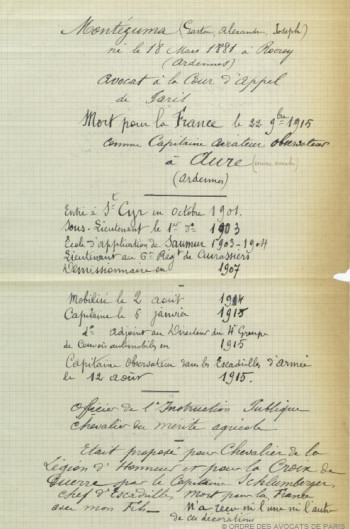 Montéguma (Gaston, Alexandre, Joseph)
né le 18 Mars 1881 à Rocroy
(Ardennes)
Avocat à la Cour d'Appel
de Paris
Mort pour la France le 22 9bre 1915
comme Capitaine aviateur observateur
à Aure
(Ardennes)
Entré à St Cyr en octobre 1901.
Sous-Lieutenant le 1er 8e 1903
Ecole d'application de Saumur 1903-1904
Lieutenant au 6e Régt de Cuirassiers
Démissionnaire en 1907
Mobilisé le 2 août 1914
Capitaine le 6 janvier 1915
de adjoint au Directeur du 4e Groupe
de Convois automobiles en 1915
Capitaine Observateur dans les Escadrilles d'Armée
le 12 août 1915.
Officier de l'Instruction Publique
Chevalier du mérite agricole
Etait proposé pour Chevalier de la
Légion d'Honneur et pour la Croix de
Guerre par le Capitaine Schlumberger,
chef d'Escadrilles, mort pour la France
avec mon Fils. N'a reçu ni l'une ni l'autre
de ces décorations
© ORDRE DES AVOCATS DE PARIS